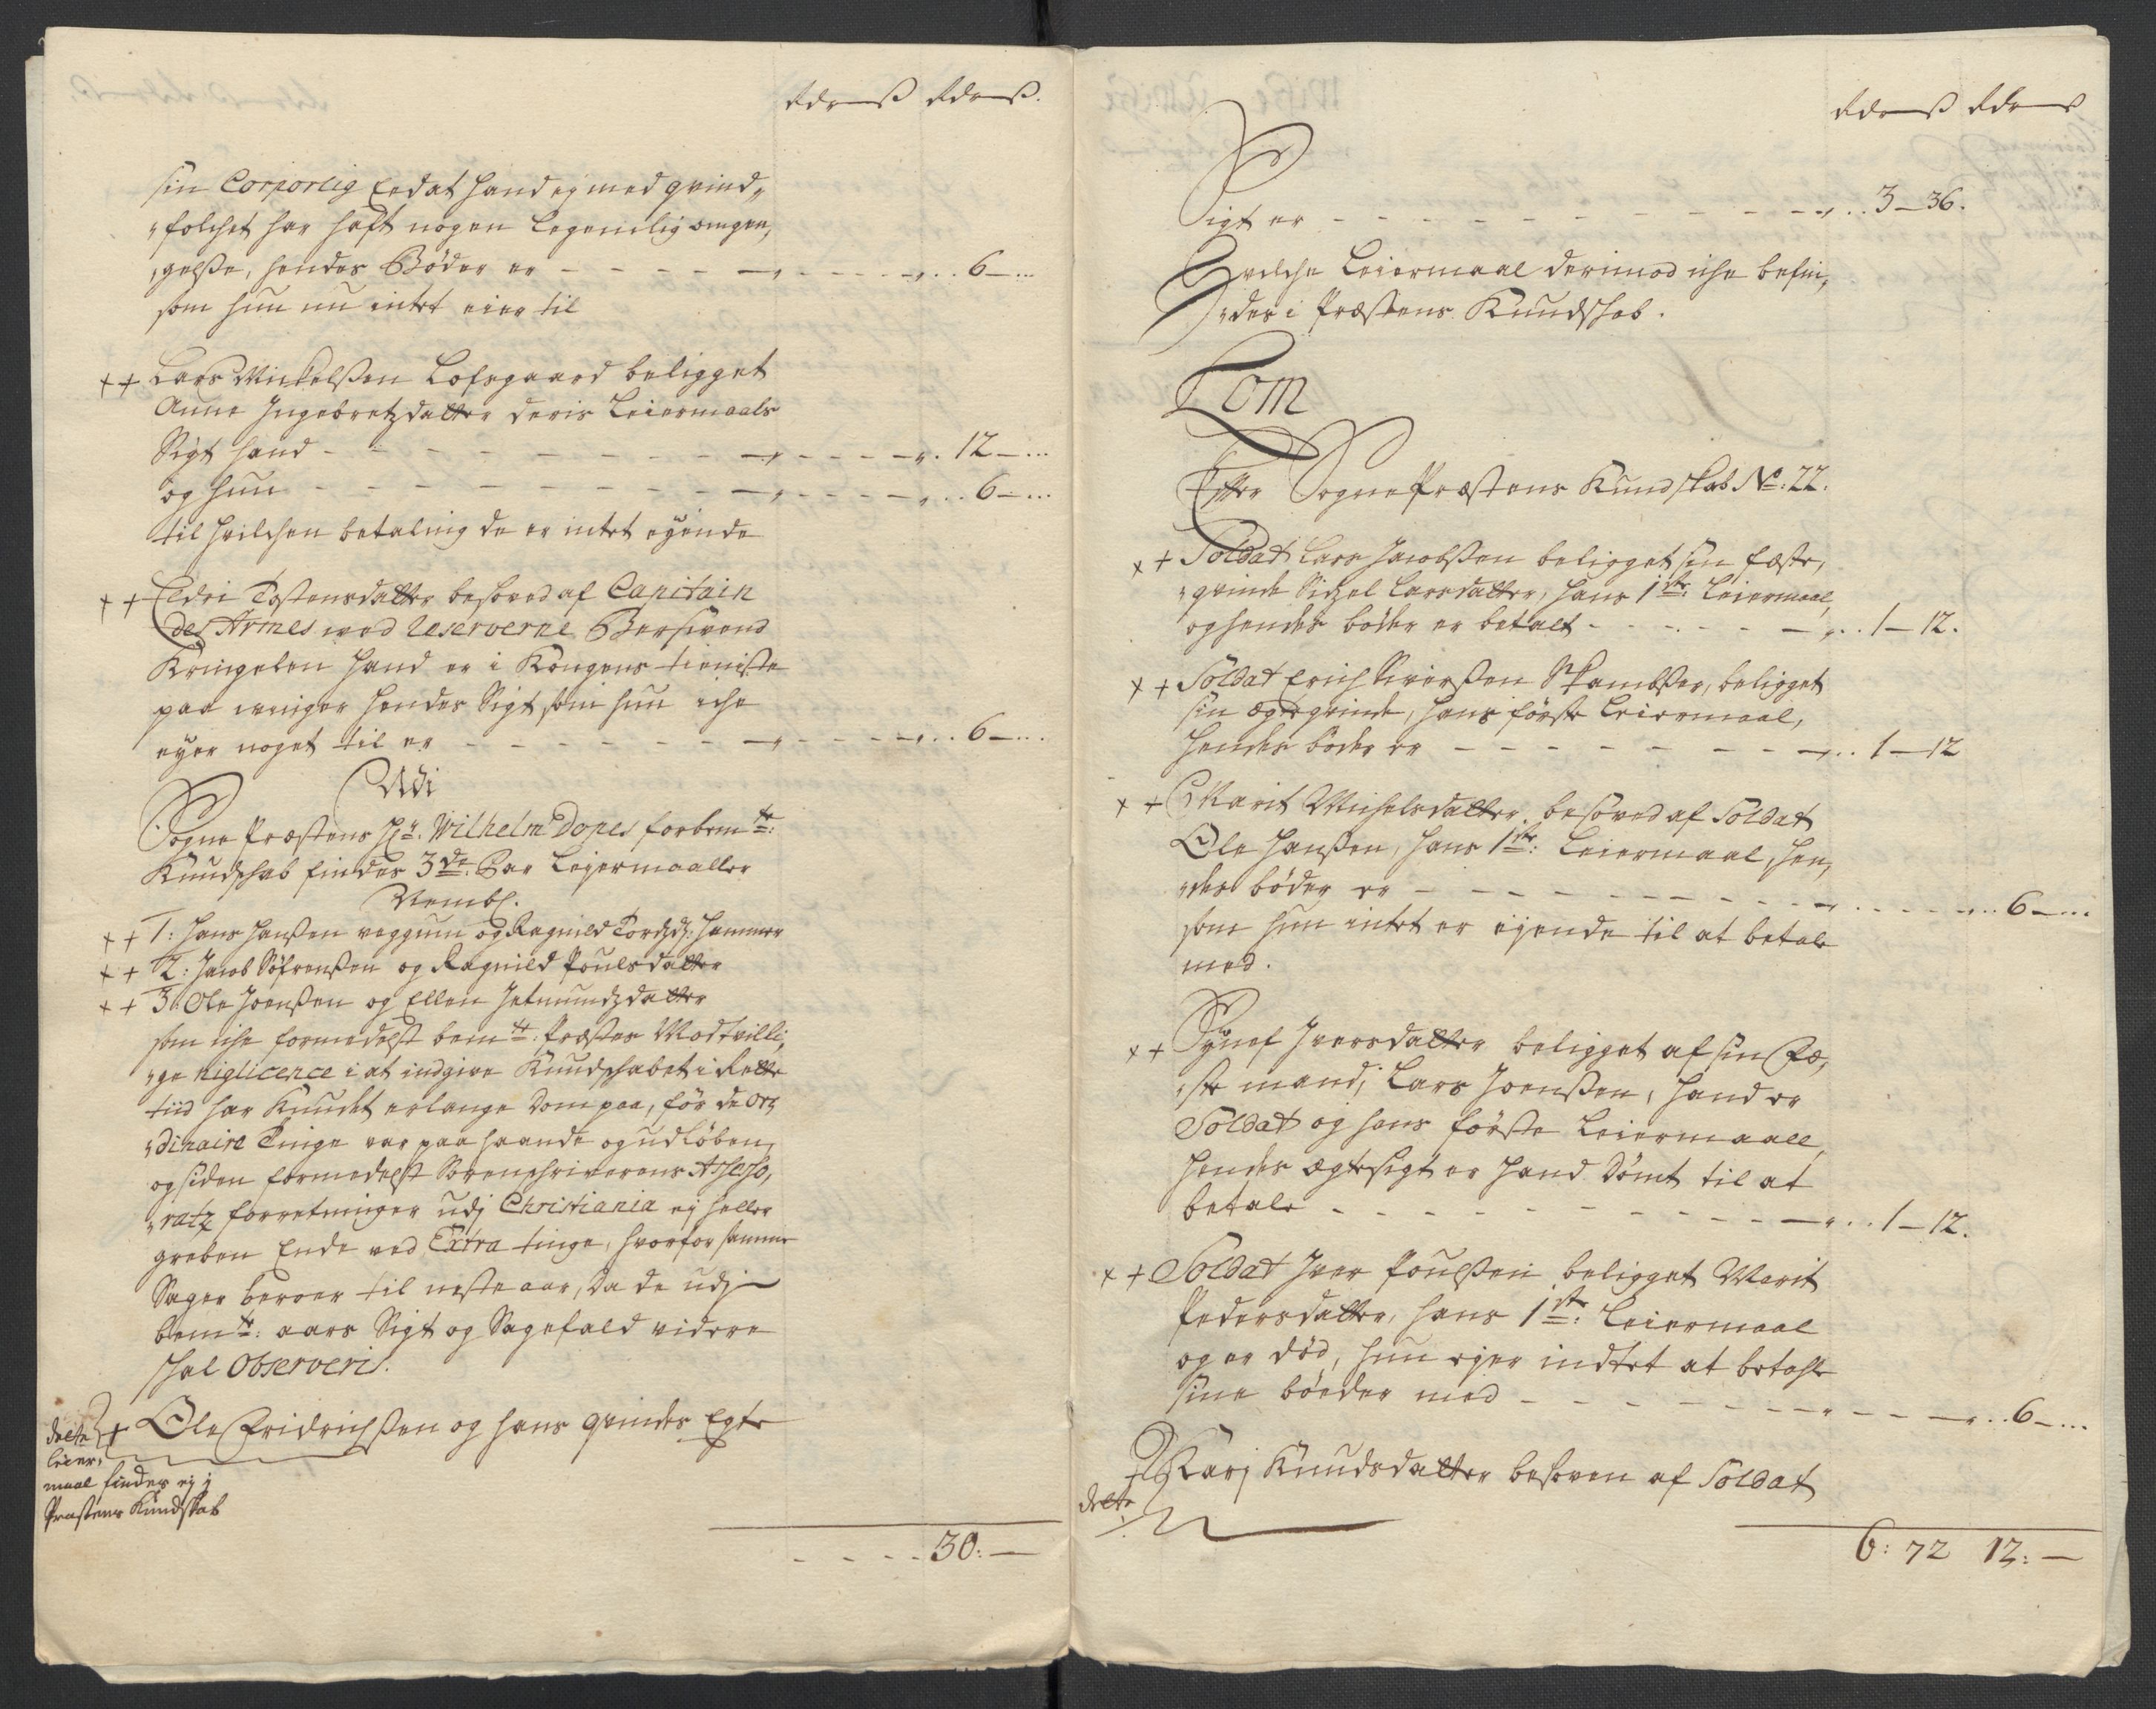 Rdr ß Rdr ß.
sin Corporlig Eed at hand ej med qvind„
„folchet har haft nogen Legemlig omgen„
„gelße, hendes Bøder er - - - - - 6 — ...
som hun nu intet eier til
++ Lars Mickelßen Lofsgaard beligget
Anne Ingebretzdatter deris Leiermaals
Sigt hand - - - - - 12 — ...
og hun - - - - - 6 — ...
til hvilchen betaling de er intet eyende
++ Eldri Tostensdatter besoved af Capitain
des Armes ved Reserverne
Kringelen hand er i Kongens tieniste
paa hendes Sigt som hun iche
eyer noget til er - - - - - 6 — ...
Udi
Sogne Præstens Hr. Wilhelm Dopes forbemte:
Kundschab findes 3de Par Leyermaaller
Nembl.
++ 1: Hans Hanßen veggum og Ragnild Tordzd: hammer
++ 2: Jacob Søfrenßen og Ragnild Poulsdatter
++ 3: Ole Joenßen og Ellen Jetmundzdatter
som iche formedelst bemte: Præstes Modtvilli„
„ge niglicence i at indgive Kundschabet i Rette
tiid har kundet erlange Dom paa, før de or„
„dinaire Tinge var paa haande og udløben,
og siden formedelst Sorenschriverens Assesso„
„ratz forretninger udj Christiania ej heller
greben Ende ved Extra tinge, hvorfor samme
Sager beroer til neste aar, da de udj
bemte: aars Sigt og Sagefald videre
schal Observeris.
+ Ole Fridrichßen og hans qvindes Egte
dette
leier„
maal findes ej j
Præstens Kundskab
- - - - 30: —
Rdr ß Rdr ß
Sigt er - - - - - 3 — 36.
Hvilche Leiermaal derimod iche befin„
„des i Præstens Kundschab.
Lom
Efter Sogne Præstens Kundskab No: 22.
++ Soldat Lars Jacobßen beligget sin fæste„
„qvinde Sidzel Larsdatter, hans 1ste: Leiermaal,
og hendes bøder er betalt - - - - - 1 — 12.
++ Soldat Erich Siverßen beligget
sin ægte qvinde, hans første Leiermaal,
hendes bøder er - - - - - 1 — 12
++ Marit Michelsdatter besoved af Soldat
Ole Hanßen, hans 1ste: Leiermaal, hen„
„des bøder er - - - - - 6 — ...
som hun intet er ejende til at betale
med.
++ Synef Iversdatter beligget af sin Fæ„
„ste mand, Lars Joenßen, hand er
Soldat og hans første Leiermaall,
hendes ægte sigt er hand dømt til at
betale - - - - - 1 — 12.
++ Soldat Iver Poulßen beligget Marit
Pedersdatter, hans 1ste: Leiermaal
og er død, hun ejer indtet at betahle
sine bøeder med - - - - - 6 — ...
+ Karj Knudsdatter besoven af Soldat
dette
6: 72 12: —